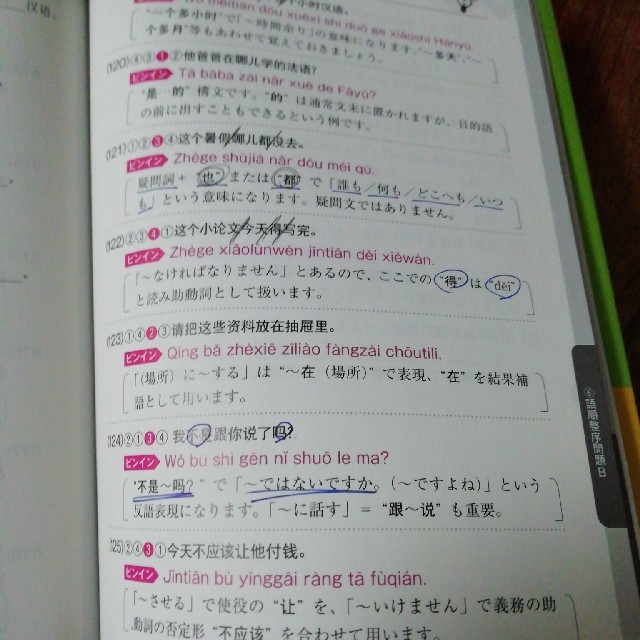 汉语。
小时汉语。
Wǒ měitiān dōu xuéxí shí duō ge xiǎoshí Hànyǔ.
"～个多小时"で「～時間余り」の意味になります。"～多天"、"～
个多月"等もあわせて覚えておきましょう。
(120)④③❶②他爸爸在哪儿学的法语?
ピンイン Tā bàba zài nǎr xué de Fǎyǔ?
"是…的"構文です。"的"は通常文末に置かれますが、目的語
の前に出すこともできるという例です。
(121)①②❸④这个暑假哪儿都没去。
ピンイン Zhège shǔjià nǎr dōu méi qù.
疑問詞+"也"または"都"で「誰も/何も/どこへも/いつ
も」という意味になります。疑問文ではありません。
(122)②③❹①这个小论文今天得写完。
ピンイン Zhège xiǎolùnwén jīntiān děi xiěwán.
「～なければなりません」とあるので、ここでの"得"は"děi"
と読み助動詞として扱います。
(123)①④❷③请把这些资料放在抽屉里。
ピンイン Qǐng bǎ zhèxiē zīliào fàngzài chōutili.
「(場所)に～する」は"～在(場所)"で表現、"在"を結果補
語として用います。
(124)②①❸④我不是跟你说了吗?
ピンイン Wǒ bú shì gēn nǐ shuō le ma?
"不是～吗?"で「～ではないですか。(～ですよね)」という
反語表現になります。「～に話す」="跟～说"も重要。
(125)②④❸①今天不应该让他付钱。
ピンイン Jīntiān bù yīnggāi ràng tā fùqián.
「～させる」で使役の"让"を、「～いけません」で義務の助
動詞の否定形"不应该"を合わせて用います。
⑤語順整序問題B